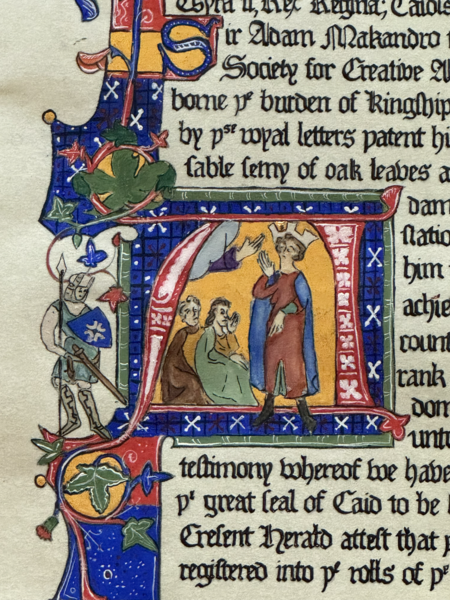 II, Rex Regina; Caidis
Sir Adam Makandro
Society for Creative A
borne yᵉ burden of Kingship
by pˢᵉ royal letters patent hi
sable semy of oak leaves a
Adam
statio
him
achie
count
rank
dom
unto
testimony whereof we have
yʳ great seal of Caid to be
Cresent Herald attest that
registered into yᵉ rolls of yᵉ